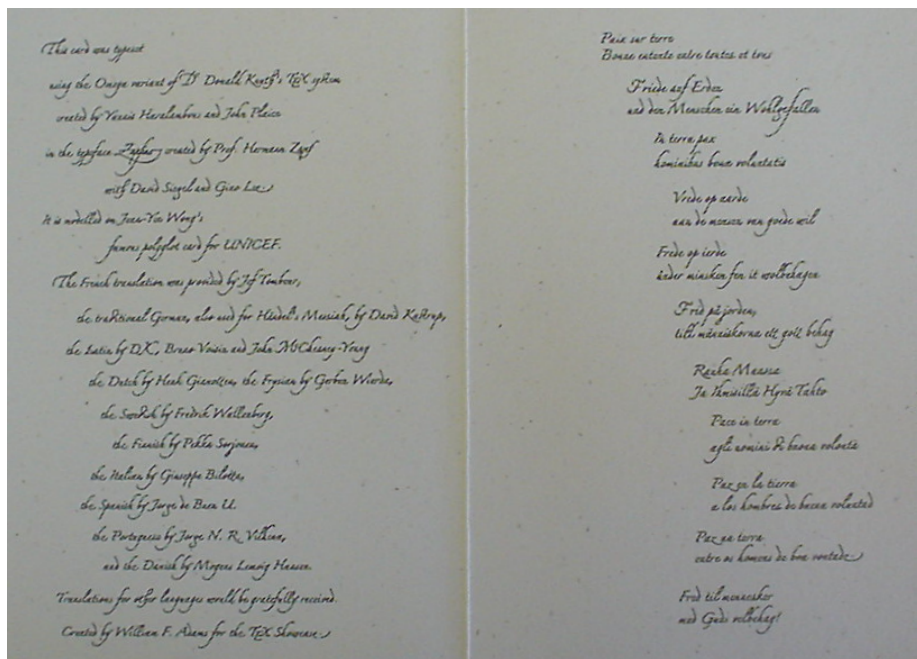 This card was typeset
using the Omega variant of Dr Donald Knuth's TeX system
created by Yannis Haralambous and John Plaice
in the typeface Zapfino created by Prof. Hermann Zapf
with David Siegel and Gino Lee
It is modelled on Jean-Yee Wong's
famous polyglot card for UNICEF.
The French translation was provided by Jef Tombeur,
the traditional German, also used for Händel's Messiah, by David Kastrup,
the Latin by DX, Bruno Voisin and John McChesney-Young
the Dutch by Henk Gianotten, the Frysian by Gerben Wierda,
the Swedish by Fredrik Wallenberg,
the Finnish by Pekka Sorjonen,
the Italian by Giuseppe Bilotta,
the Spanish by Jorge de Buen U.
the Portuguese by Jorge N. R. Vilhena,
and the Danish by Mogens Lemvig Hansen.
Translations for other languages would be gratefully received.
Created by William F. Adams for the TeX Showcase
Paix sur terre
Bonne entente entre toutes et tous
Friede auf Erden
und den Menschen ein Wohlgefallen
In terra pax
hominibus bonae voluntatis
Vrede op aarde
aan de mensen van goede wil
Frede op ierde
ûnder minsken fen it wolbehagen
Frid på jorden,
till människorna ett gott behag
Rauha Maassa
Ja Ihmisillä Hyvä Tahto
Pace in terra
agli uomini di buona volontà
Paz en la tierra
a los hombres de buena voluntad
Paz na terra
entre os homens de boa vontade
Fred til mennesker
med Guds velbehag!